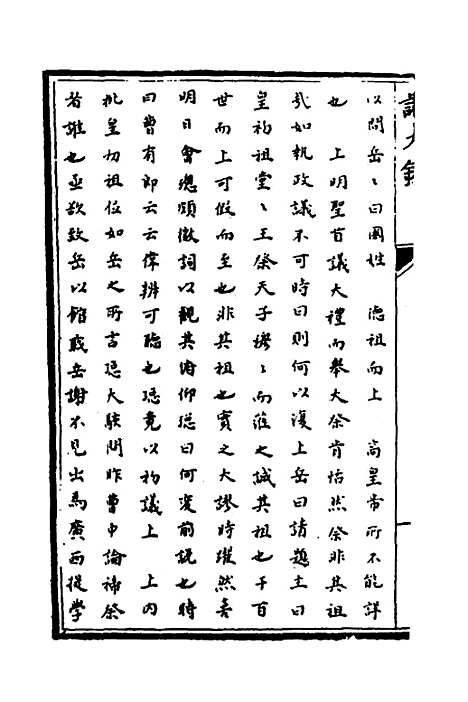 以問岳〻曰國姓　德祖而上　高皇帝所不能詳
也　上明聖首議大禮而舉大祭肯怡然祭非其祖
哉如執政議不可時曰則何以復上岳曰請題主曰
皇初祖堂〻王祭天子穆〻而蒞之誠其祖也千百
世而上可假而至也非其祖也實之大謬時躍然喜
明日會璁頗微詞以觀其俯仰璁曰何変前説也時
曰曹有郎云云偉辨可聽也璁竟以初議上　上内
批皇初祖位如岳之所言璁大駭問昨曹中論禘祭
者誰也亟欲致岳以館職岳謝不見出爲廣西提學